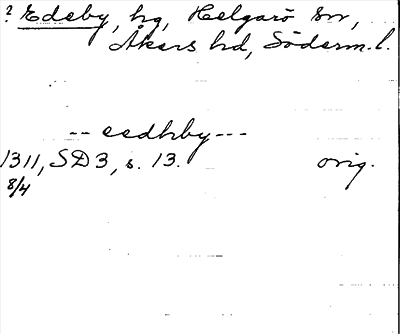 ? Edeby, hg, Helgarö sn,
Åkers hd, Söderm. l.
-- eedhby ---
1311, SD3, s. 13. orig.
8/4